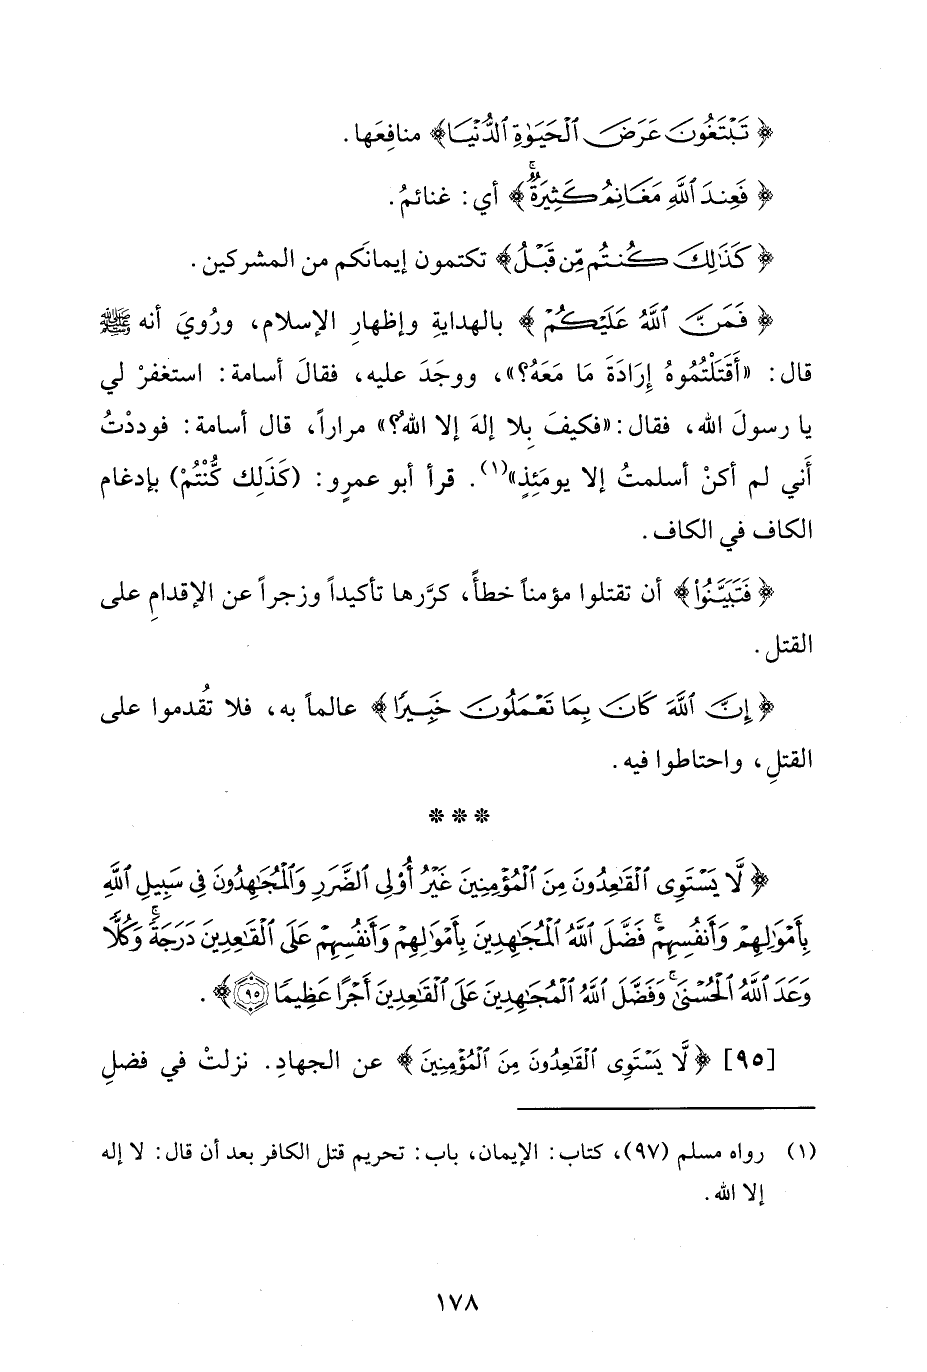 ﴿ تَبْتَغُونَ عَرَضَ ٱلْحَيَوٰةِ ٱلدُّنْيَا﴾ منافِعَها.
﴿ فَعِندَ ٱللَّهِ مَغَانِمُ كَثِيرَةٌ ۚ﴾ أي: غنائمُ.
﴿ كَذَٰلِكَ كُنتُم مِّن قَبْلُ﴾ تكتمون إيمانَكم من المشركين.
﴿ فَمَنَّ ٱللَّهُ عَلَيْكُمْ ﴾ بالهدايةِ وإظهارِ الإسلام، ورُويَ أنه ﷺ
قال: «أَقَتَلْتُمُوهُ إِرَادَةَ مَا مَعَهُ؟»، ووجَدَ عليه، فقالَ أسامة: استغفرْ لي
يا رسولَ الله، فقال: «فكيفَ بِلا إلهَ إلا اللهُ؟» مراراً، قال أسامة: فوددْتُ
أَني لم أكنْ أسلمتُ إلا يومَئِذٍ»(١). قرأ أبو عمرٍو: (كَذَلِك كُّنْتُمْ) بإدغام
الكاف في الكاف.
﴿ فَتَبَيَّنُوٓا۟ ﴾ أن تقتلوا مؤمناً خطأً، كرَّرها تأكيداً وزجراً عن الإقدامِ على
القتلِ.
﴿ إِنَّ ٱللَّهَ كَانَ بِمَا تَعْمَلُونَ خَبِيرًا ﴾ عالماً به، فلا تُقدموا على
القتلِ، واحتاطوا فيه.
* * *
﴿ لَّا يَسْتَوِى ٱلْقَٰعِدُونَ مِنَ ٱلْمُؤْمِنِينَ غَيْرُ أُو۟لِى ٱلضَّرَرِ وَٱلْمُجَٰهِدُونَ فِى سَبِيلِ ٱللَّهِ
بِأَمْوَٰلِهِمْ وَأَنفُسِهِمْ ۚ فَضَّلَ ٱللَّهُ ٱلْمُجَٰهِدِينَ بِأَمْوَٰلِهِمْ وَأَنفُسِهِمْ عَلَى ٱلْقَٰعِدِينَ دَرَجَةً ۚ وَكُلًّا
وَعَدَ ٱللَّهُ ٱلْحُسْنَىٰ ۚ وَفَضَّلَ ٱللَّهُ ٱلْمُجَٰهِدِينَ عَلَى ٱلْقَٰعِدِينَ أَجْرًا عَظِيمًا ٩٥﴾ .
[٩٥] ﴿ لَّا يَسْتَوِى ٱلْقَٰعِدُونَ مِنَ ٱلْمُؤْمِنِينَ ﴾ عن الجهادِ. نزلتْ في فضلِ
(١) رواه مسلم (٩٧)، كتاب: الإيمان، باب: تحريم قتل الكافر بعد أن قال: لا إله
إلا الله.
١٧٨